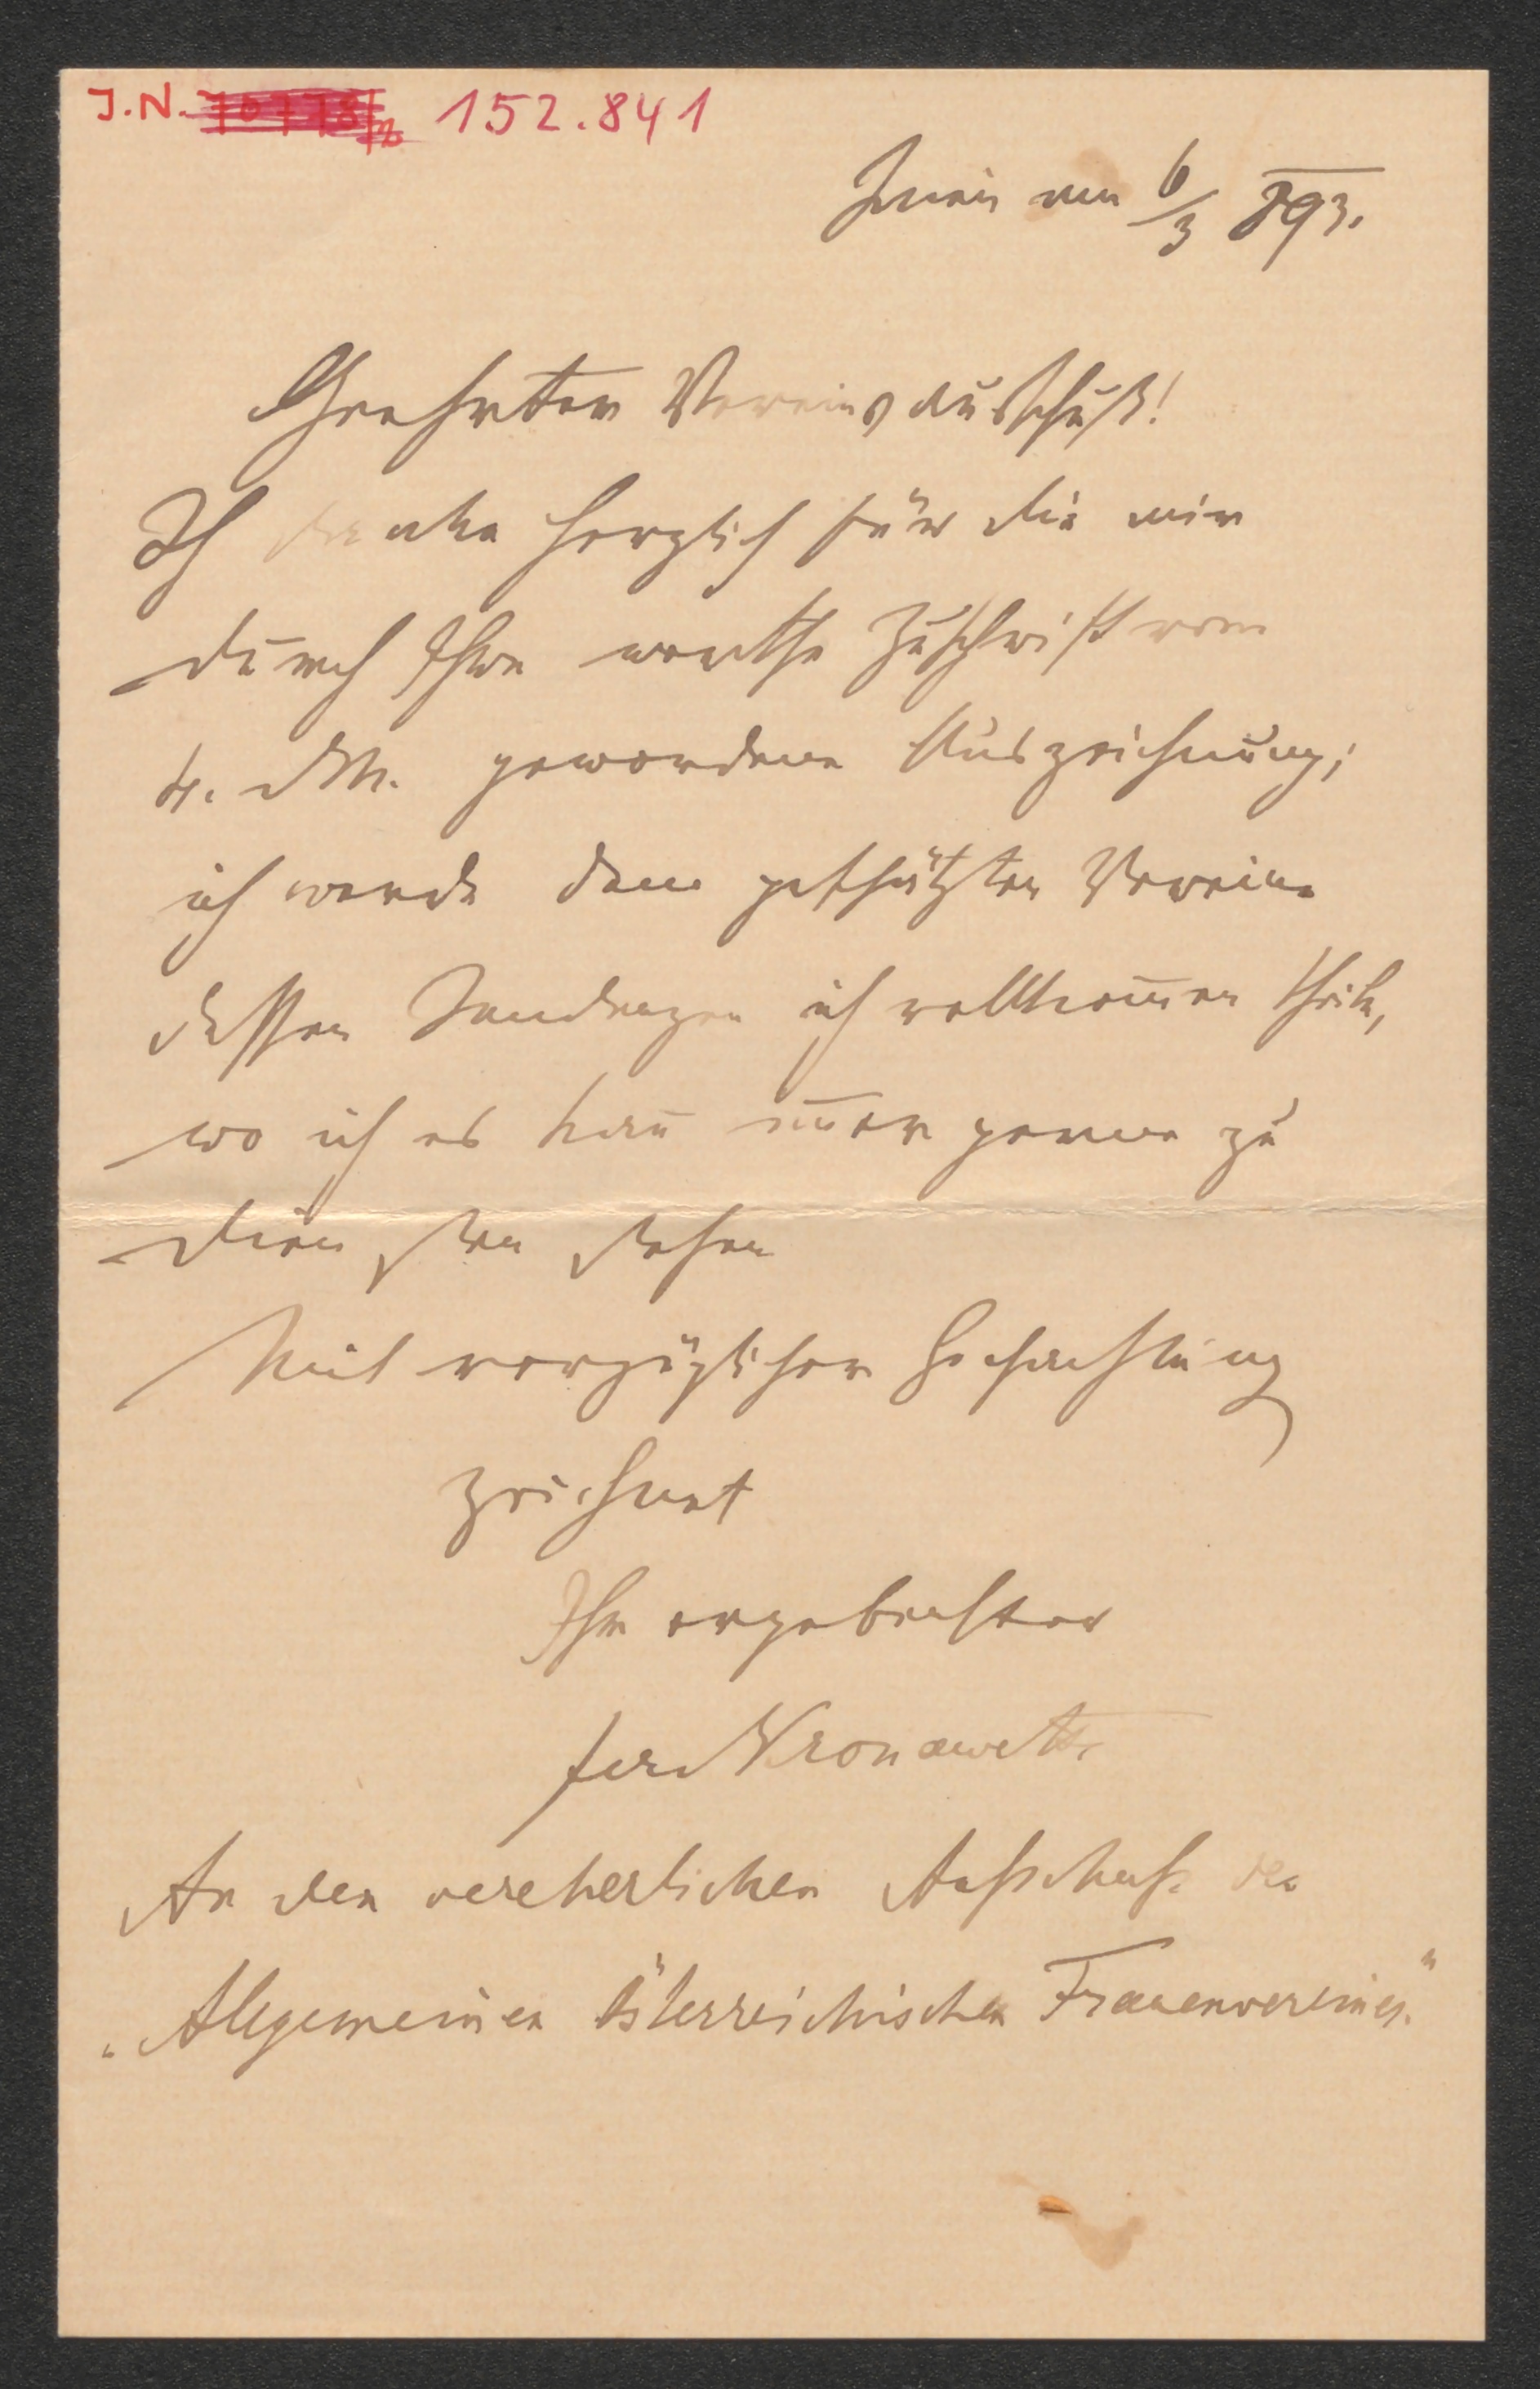 J.N. 152.841
am 6/3 893.
Geehrter Vereinsausschuß!
Ich danke herzlich für die mir
durch Ihre werthe Zuschrift vom
4. d M. gewordene Auszeichnung;
ich werde dem geschätzten Vereine
dessen Tendenzen ich vollkom̄en theile,
wo ich es kan̄ im̄er gerne zu
Diensten stehen
Mit vorzüglicher Hochachtung
zeichnet
Ihr ergebenster
Ferd Kronawetter
An den verehrlichen Ausschuß des
„Allgemeinen österreichischen Frauenvereines."